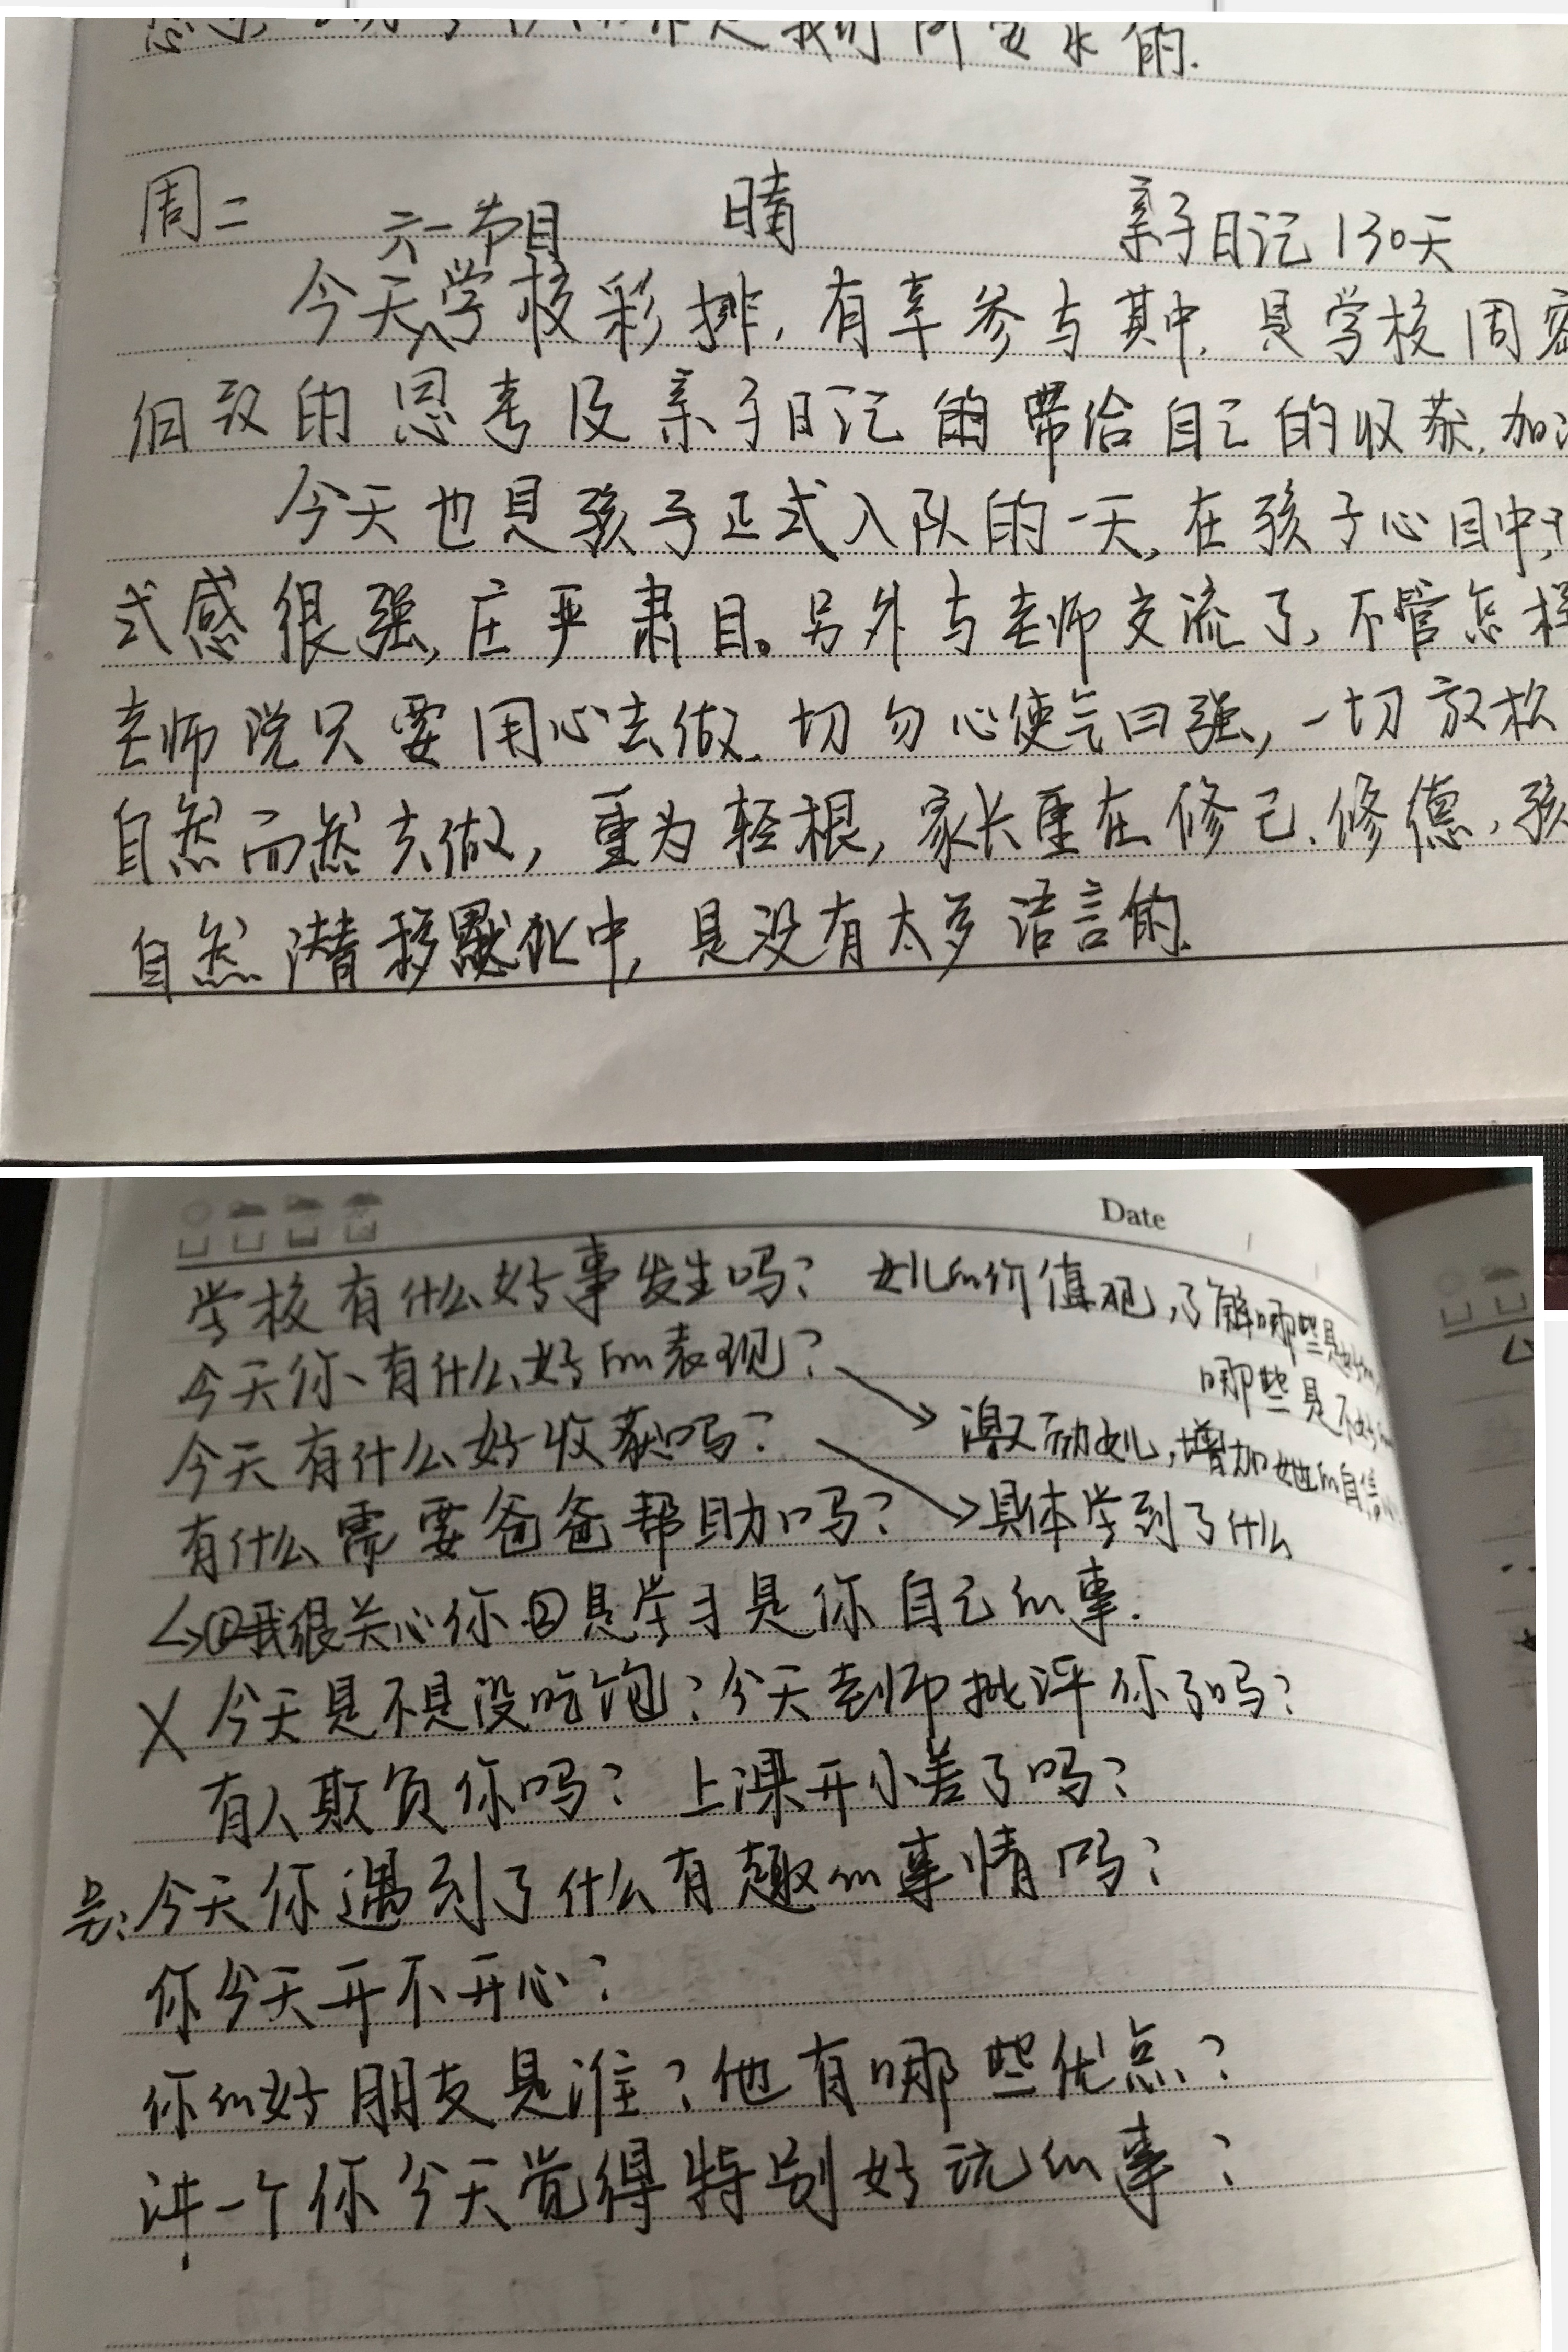 我们所要求的.
周二 晴 亲子日记130天
六一节目
今天学校彩排,有幸参与其中,是学校周密
细致的思考及亲子日记的带给自己的收获,加
今天也是孩子正式入队的一天,在孩子心目中,
式感很强,庄严肃目。另外与老师交流了,不管怎样
老师说只要用心去做.切勿心使气曰强,一切放松
自然而然去做,重为轻根,家长重在修己.修德,孩
自然潜移默化中,是没有太多语言的.
Date
学校有什么好事发生吗? 女儿的价值观,了解哪些是好的
哪些是不好的
今天你、有什么好的表现?
激励女儿,增加她的自信心
今天有什么好收获吗?
有什么需要爸爸帮助吗? 具体学到了什么
①我很关心你.②是学习是你自己的事.
X 今天是不是没吃饱?今天老师批评你了吗?
有人欺负你吗? 上课开小差了吗?
另:今天你遇到了什么有趣的事情吗?
你今天开不开心?
你的好朋友是谁?他有哪些优点?
讲一个你今天觉得特别好玩的事?